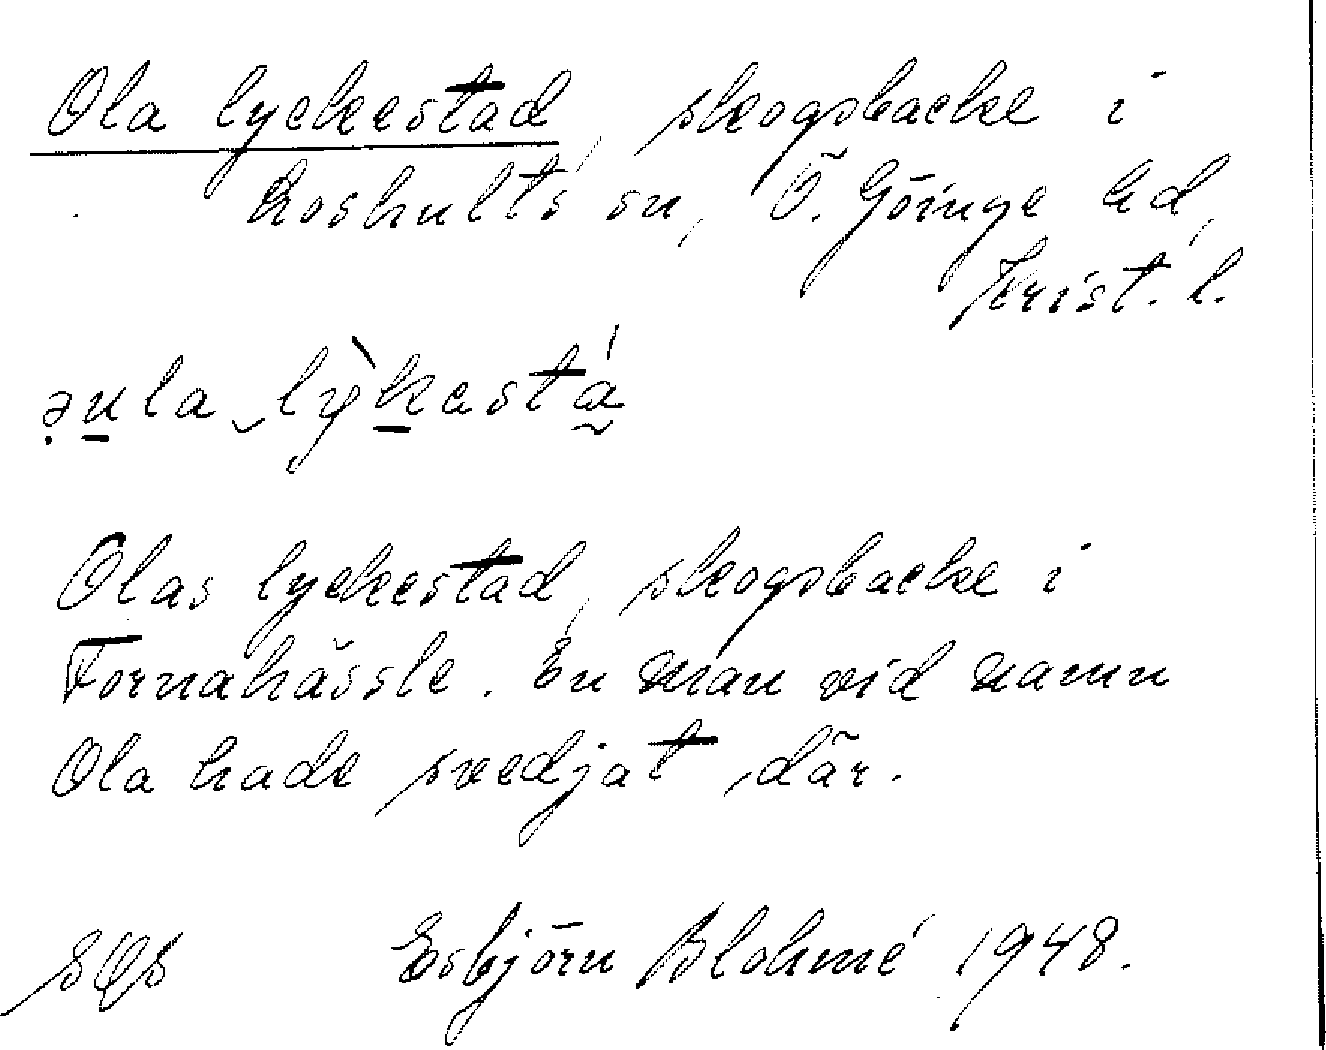 Ola lyckestad, skogsbacke i
Loshults sn, Ö. Göinge hd,
Krist. l.
Olas lyckestad, skogsbacke i
Tornahässle. En man vid namn
Ola hade svedjat där.
Esbjörn Blohmé 1948.